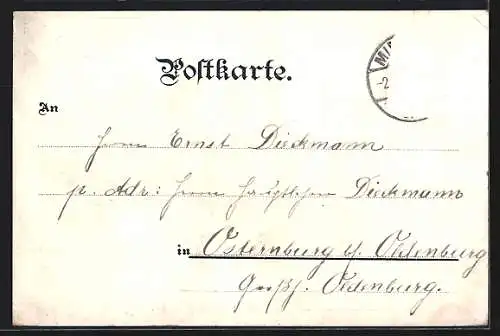 Postkarte.
MI
-2
An
Herrn Ernst Dieckmann
p. Adr: Herrn Hauptlehrer Dieckmann
in Osternburg b/ Oldenburg
Großh. Oldenburg.